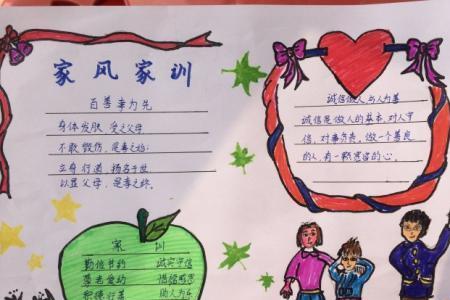 家风家训
百善孝为先
身体发肤，受之父母
不敢毁伤，是孝之始。
立身行道，扬名于世
以显父母，是孝之终。
诚信做人 与人为善
诚信是做人的基本，对人守
信，对事负责，做一个善良
的人，有一颗宽容的心。
家 训
勤俭节约 诚实守信
尊老爱幼
助人为